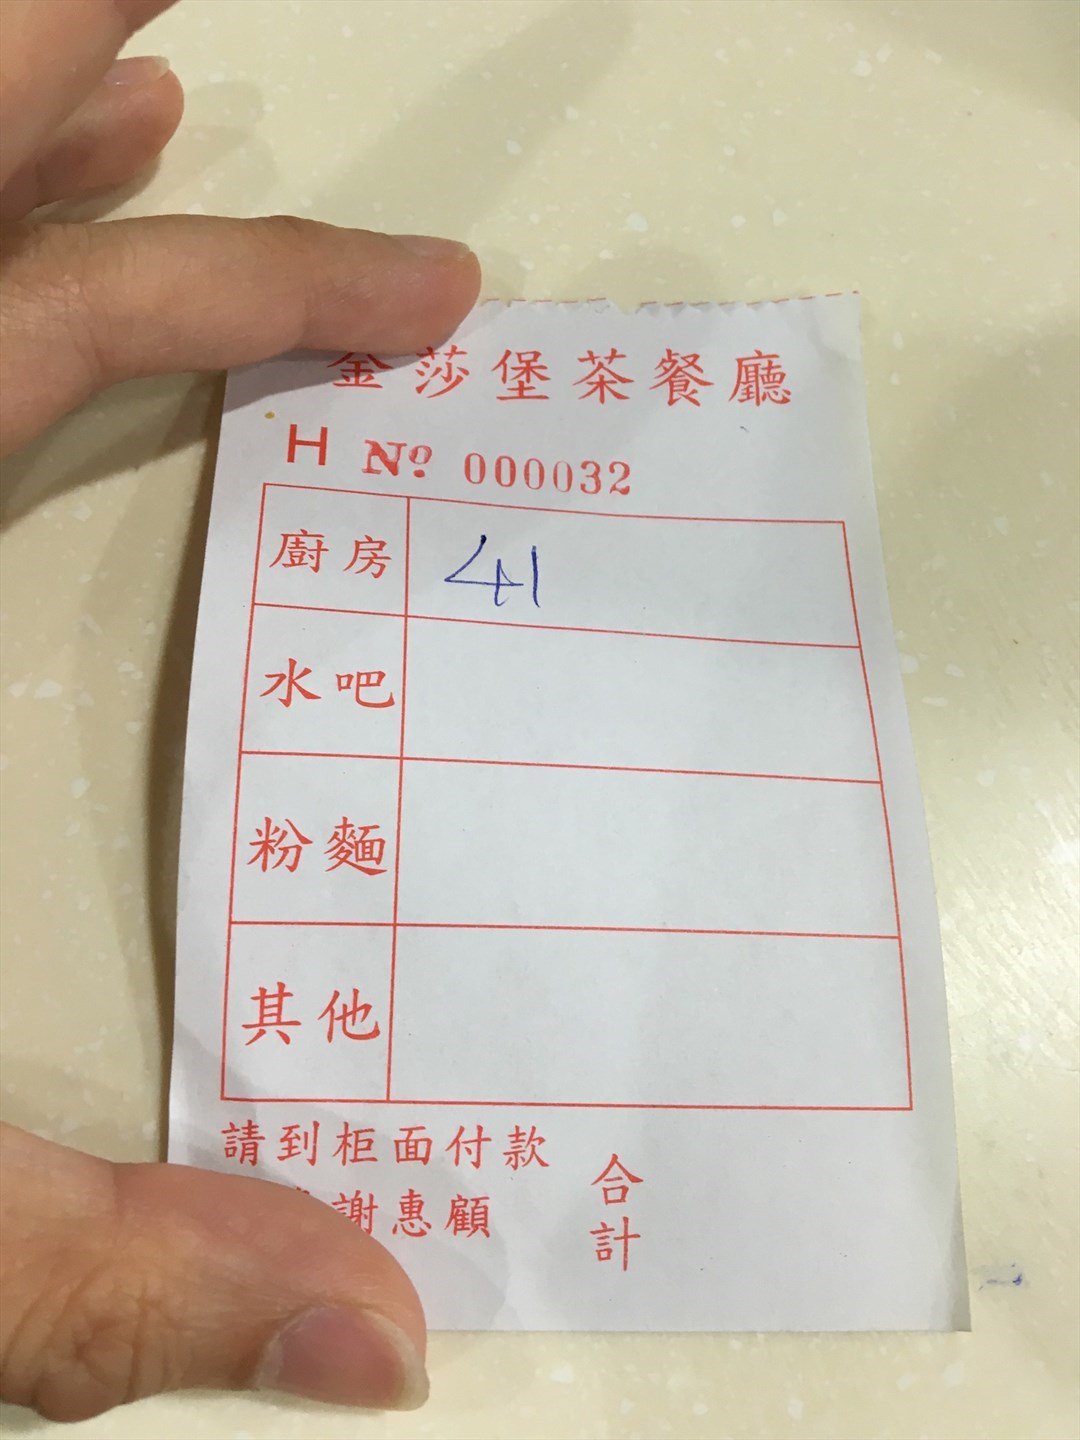 金莎堡茶餐廳
H Nº 000032
廚房 41
水吧
粉麵
其他
請到柜面付款
謝惠顧
合計